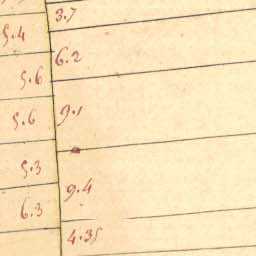 3.7
5.4
6.2
5.6
5.6
9.1
5.3
9.4
6.3
4.35